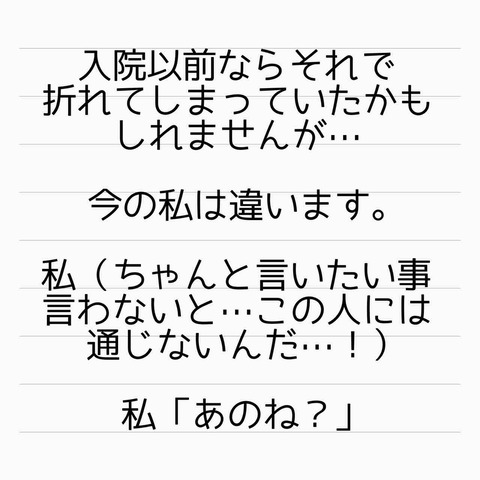 入院以前ならそれで
折れてしまっていたかも
しれませんが…
今の私は違います。
私（ちゃんと言いたい事
言わないと…この人には
通じないんだ…！）
私「あのね？」